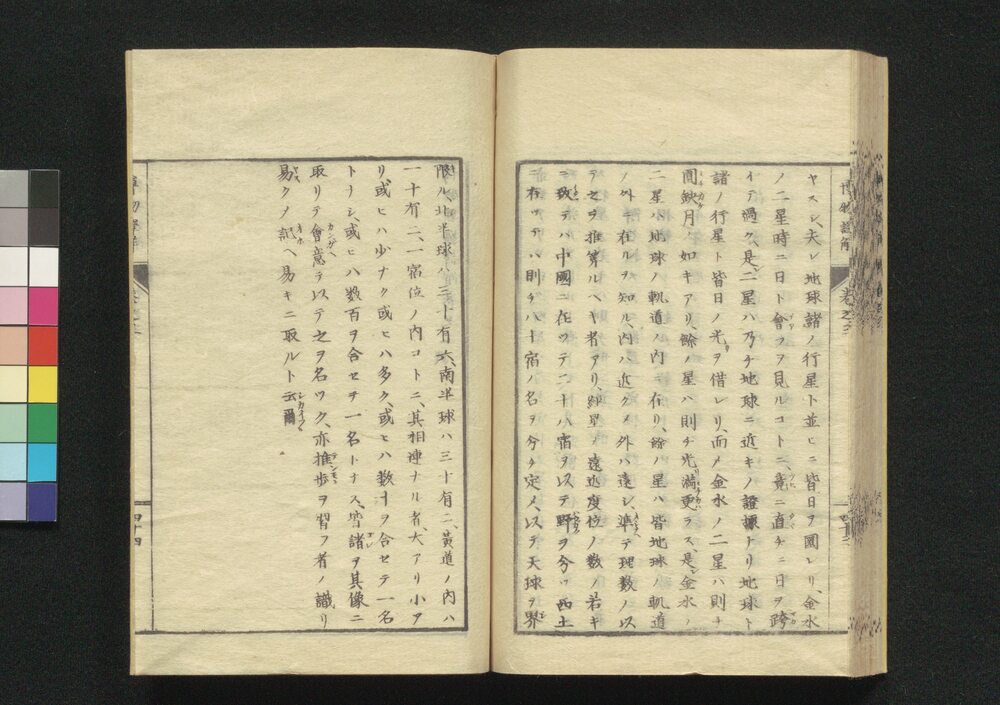 ヤスシ夫レ地球諸ノ行星ト並ヒニ皆日ヲ圜レリ、金水
ノ二星時ニ日ト會フヲ見ルコトニ、竟ニ直チニ日ヲ跨
イデ過ク、是二星ハ乃チ地球ニ近キノ證據トリ地球ト
諸ノ行星ト皆日ノ光ヲ借レリ、而メ金水ノ二星ハ則チ
間缺月ノ如キアリ、餘ノ星ハ則チ光滿更ラス、是金水ノ
二星ハ地球ノ軌道ノ内ニ在リ、餘ノ星ハ皆地球ノ軌道
ノ外ニ在ルヲ知ル、内ハ近クメ外ハ遠シ、準テ理數ノ以
テ之ヲ推算ルヘキ者アリ、經星ノ遠近度位ノ数ノ若キ
ニ致テハ中國ニ在ツテ二十八宿ヲ以テ野ヲ分ツ西土
ニ在ツテハ則チ八十宿ノ名ヲ分チ定メ、以テ天球ヲ界
四十三
限ル、北半球ハ三十有六、南半球ハ三十有二、黄道ノ内ハ
一十有二、一宿位ノ内コトニ、其相連ナル者、大アリ小ア
リ、或ヒハ少ナク或ヒハ多ク、或ヒハ数十ヲ合セテ一名
トナシ、或ヒハ数百ヲ合セテ一名トナス、皆諸ヲ其像ニ
取リテ會意ヲ以テ之ヲ名ツク、亦推歩ヲ習フ者ノ識リ
易クノ記ヘ易キニ取ルト云爾
四十四